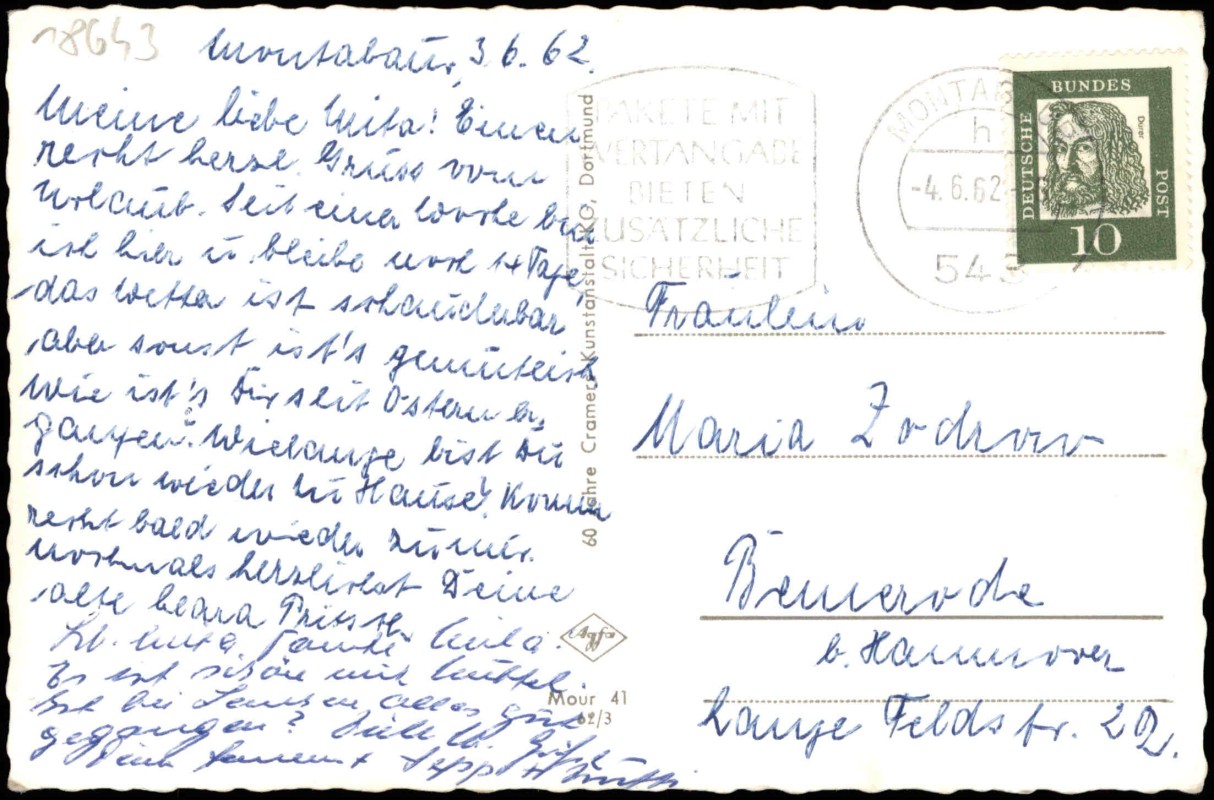 18643
Montabaur, 3.6.62.
Meine liebe Mita! Einen
recht herzl. Gruss vom
Urlaub. Seit einer Woche bin
ich hier u bleibe noch 14 Tage,
das Wetter ist schauderbar
aber sonst ist's gemütlich
Wie ist's Dir seit Ostern er,
gangen? Wielange bist Du
schon wieder zu Hause? Komm
recht bald wieder zu mir.
nochmals herzlichst Deine
alte
Lb. Mita.
Es ist schön mit
bei alles gut
gegangen?
Sepp
60 Jahre Cramers Kunstanstalt KG, Dortmund
Agfa
Mour 41
62/3
PAKETE MIT
WERTANGABE
BIETEN
ZUSÄTZLICHE
SICHERHEIT
MONTABAUR
h
-4.6.62
543
DEUTSCHE BUNDESPOST
Dürer
10
Fräulein
Maria Zodrow
Bemerode
b. Hannover
Lange Feldstr. 22.